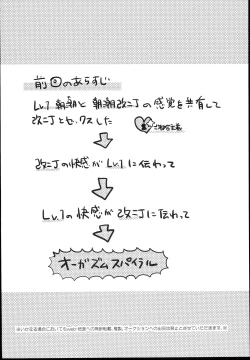 前回のあらすじ
Lv.1朝潮と朝潮改二丁の感覚を共有して
改二丁とセックスした
改二丁の快感がLv.1に伝わって
Lv.1の快感が改二丁に伝わって
オーガズムスパイラル